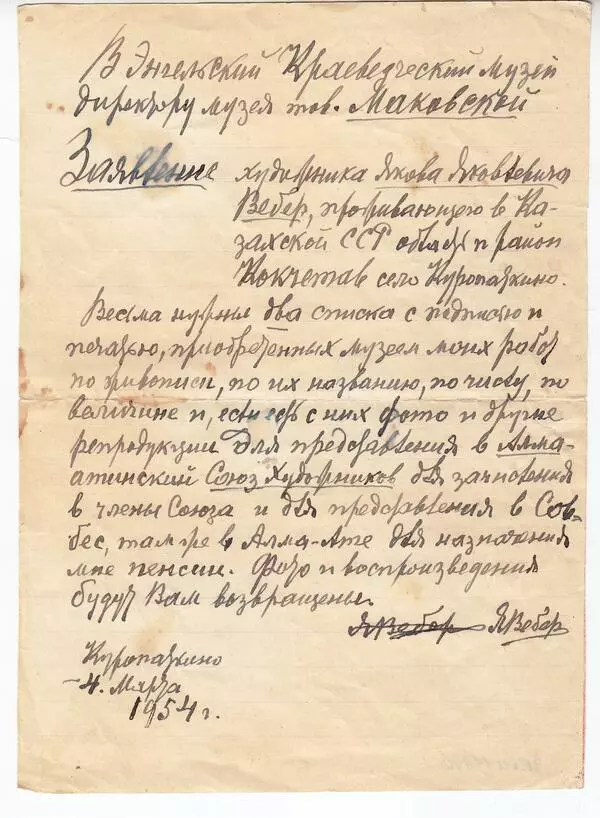 В Энгельский Краеведческий музей
директору музея тов. Маковской
Заявление художника Якова Яковлевича
Вебер, проживающего в Ка-
захской ССР область и район
Кокчетав село Куропаткино.
Весьма нужны два списка с подписью и
печатью, приобретенных музеем моих работ
по живописи, по их названию, по числу, по
величине и, если есть с них фото и другие
репродукции для представления в Алма-
атинский Союз Художников для зачисления
в члены Союза и для представления в Соб-
бес, там же в Алма-Ате для назначения
мне пенсии. Фото и воспроизведения
будут Вам возвращены.
ЯВебер ЯВебер
Куропаткино
4. Марта
1954 г.